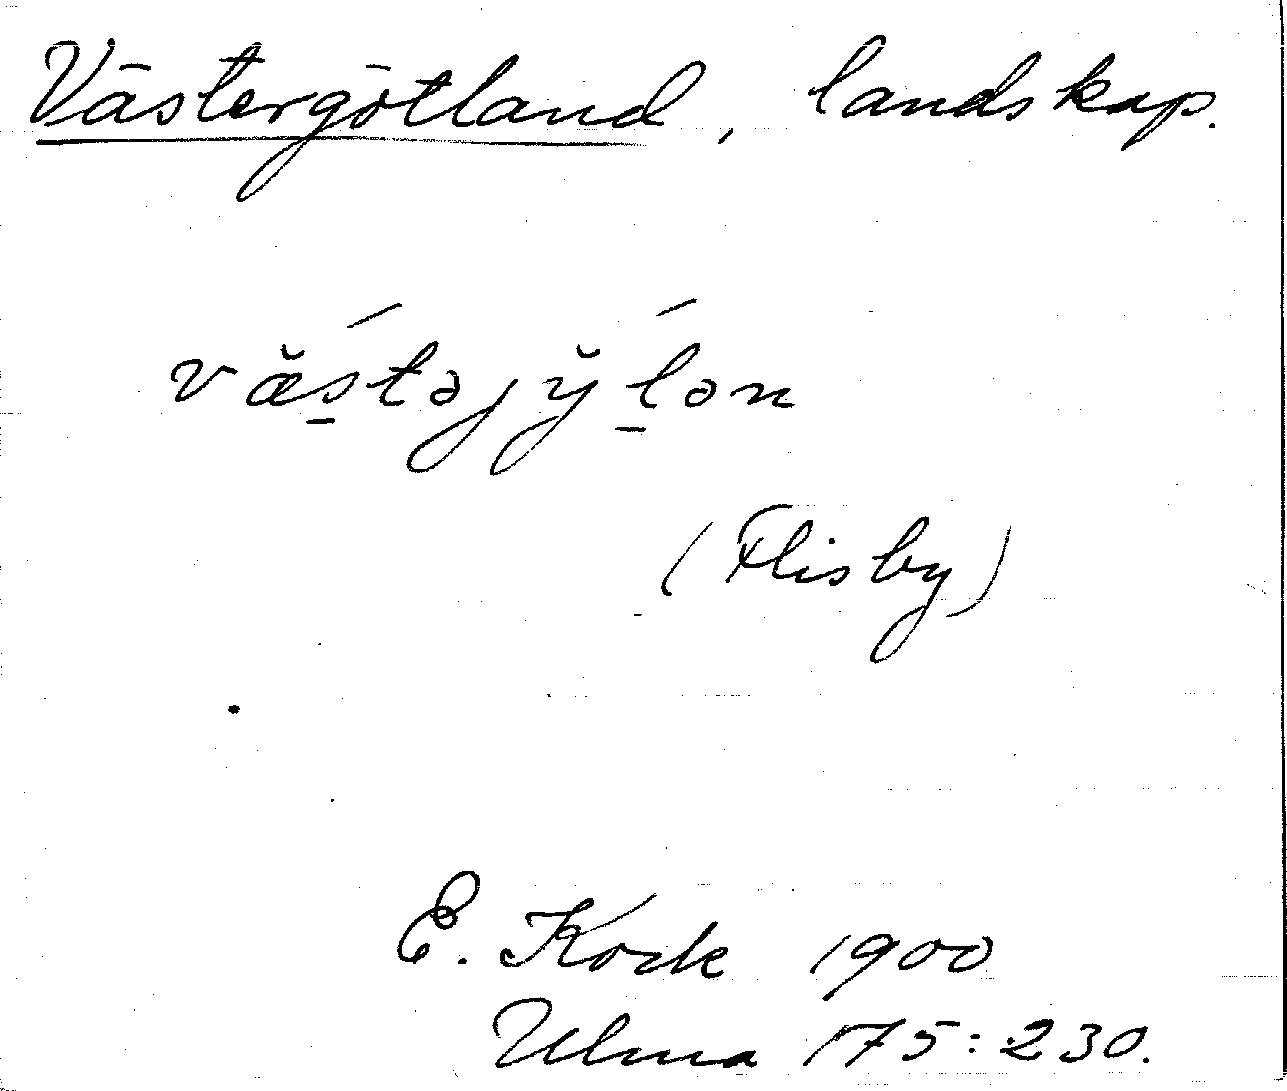 Västergötland, landskap.
væ̆ś̱təjy̆ḻ́ən
(Flisby)
E. Kock 1900
Ulma 175:230.